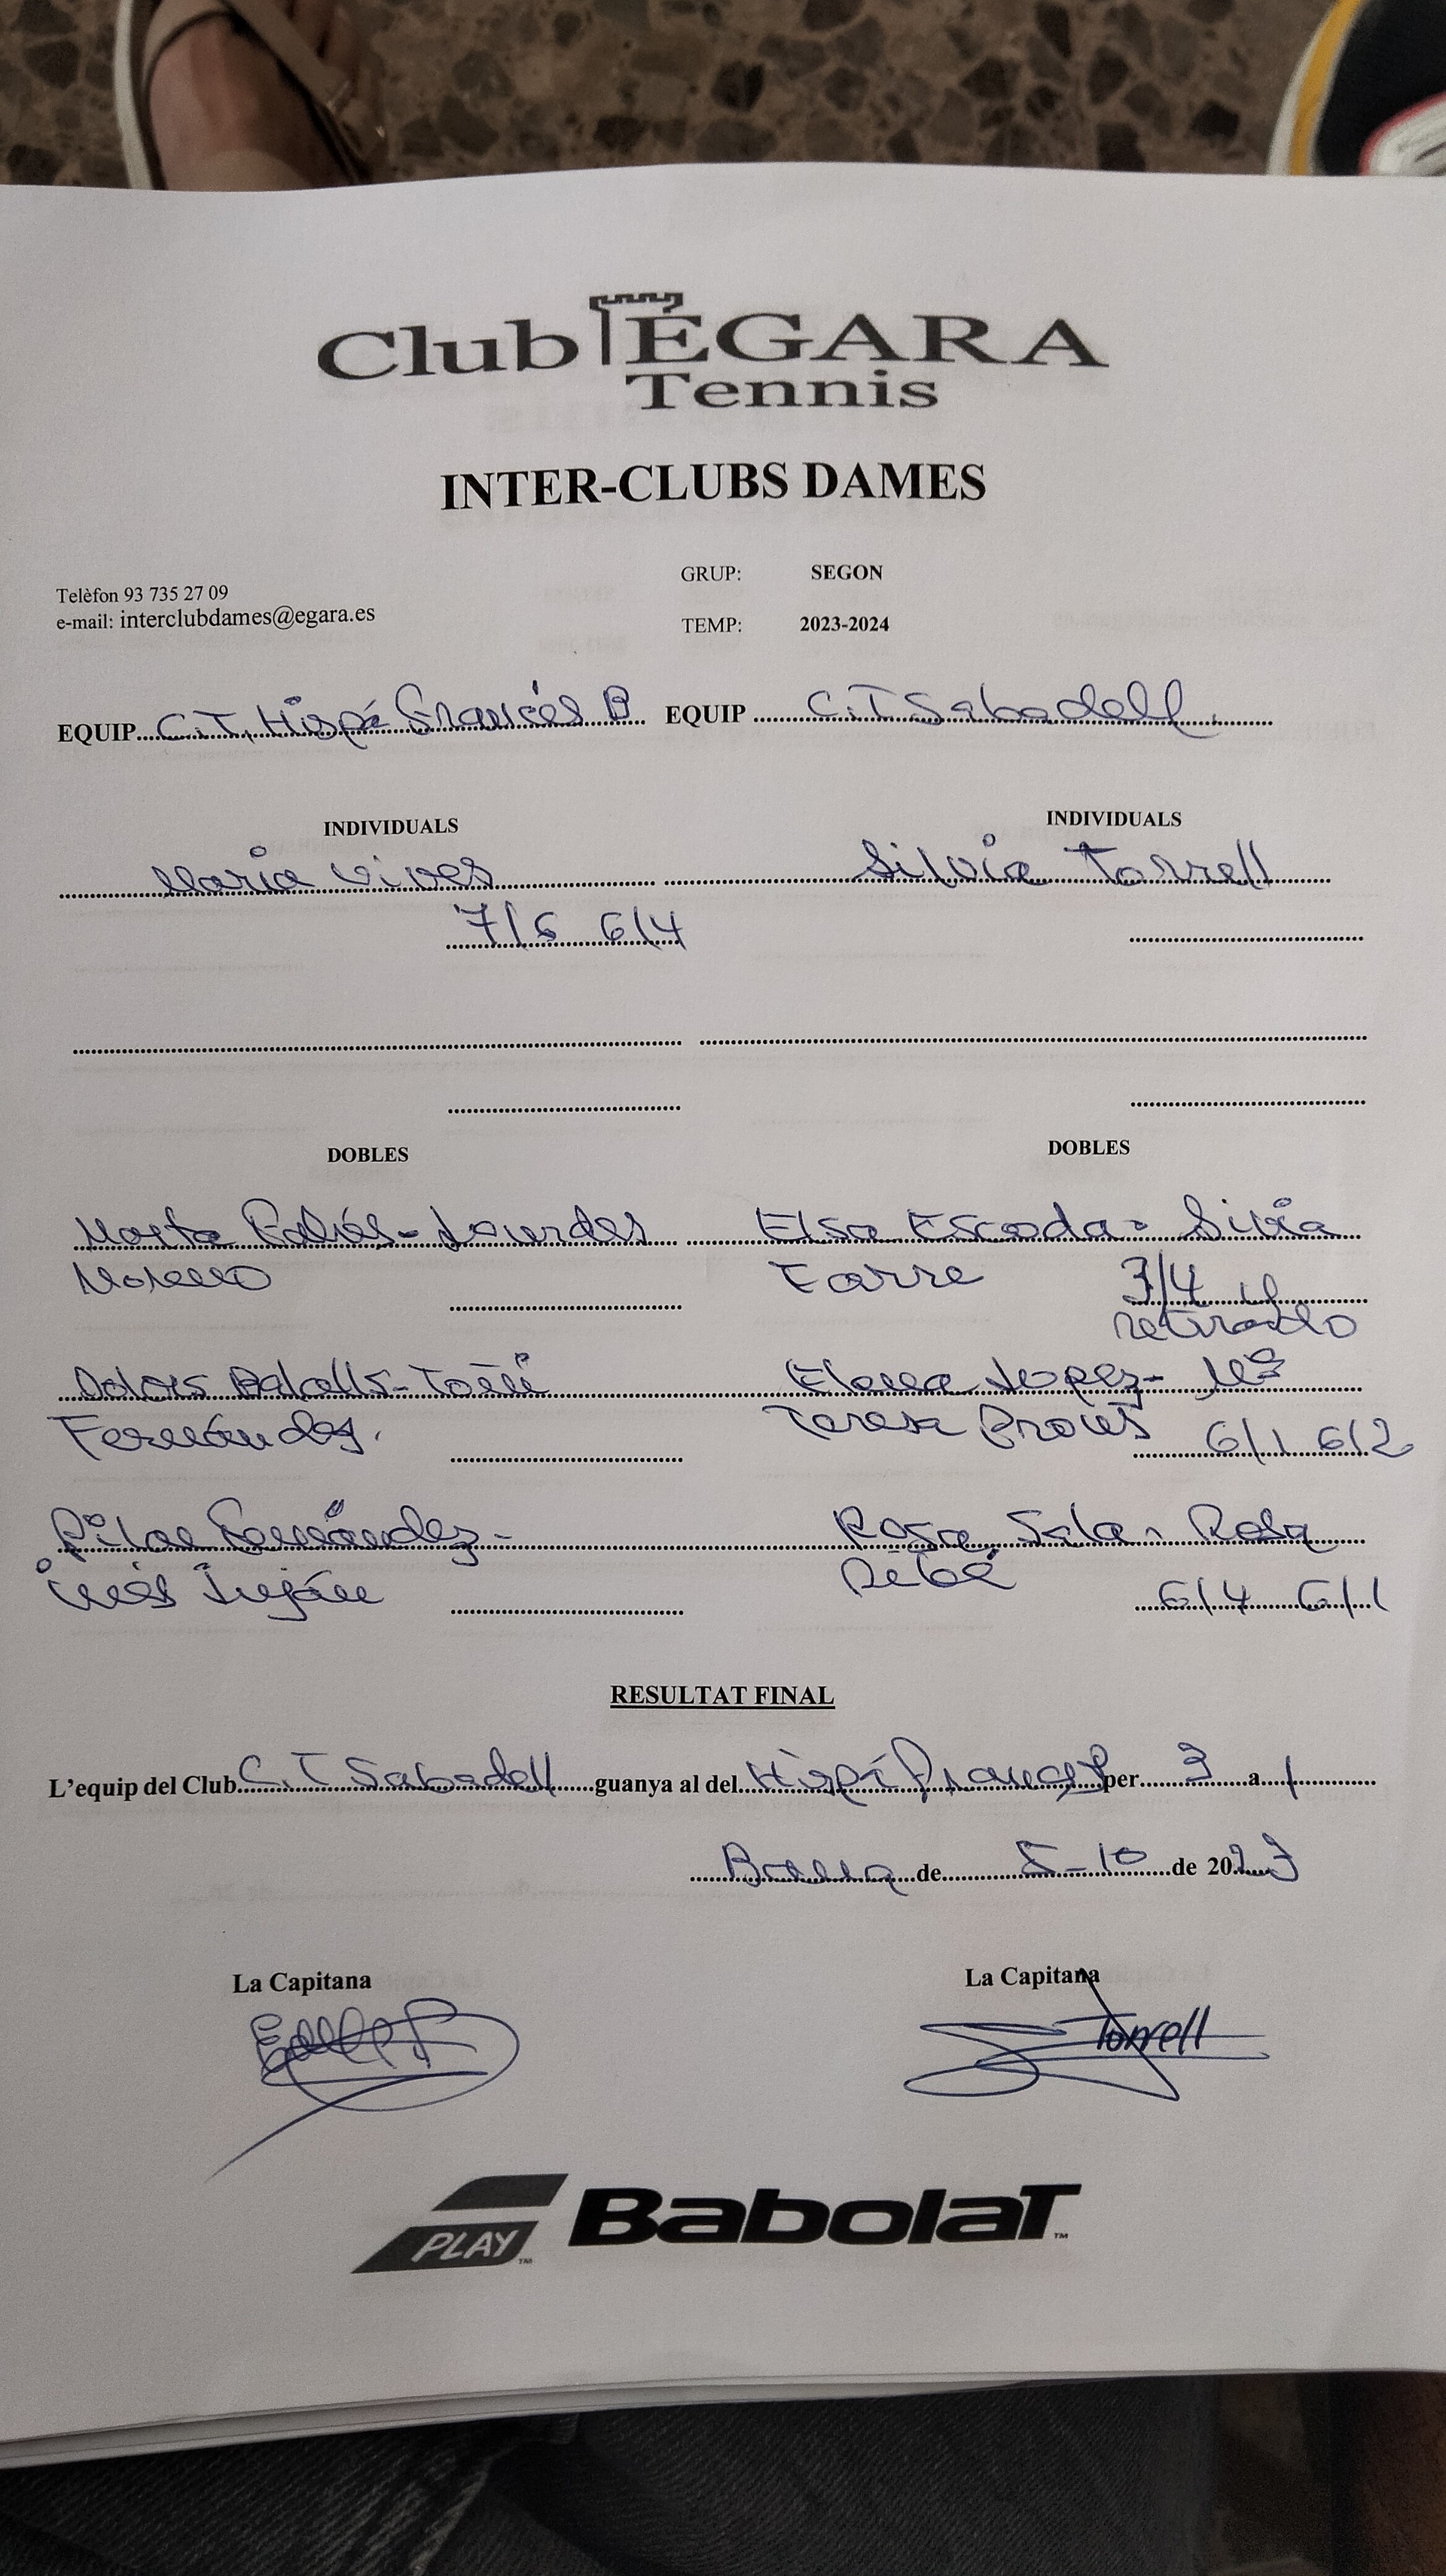 Club EGARA
Tennis
INTER-CLUBS DAMES
GRUP: SEGON
Telèfon 93 735 27 09
e-mail: interclubdames@egara.es
TEMP: 2023-2024
EQUIP C.T. Hispá Francés B EQUIP C.T Sabadell
INDIVIDUALS INDIVIDUALS
Maria Vives Silvia Torrell
7/6 6/4
DOBLES DOBLES
Marta Lourdes Elsa Escoda - Silvia
Moreno Farre 3/4
retirado
Dolors Toñi Elena Lopez - Mª
Fernández. Teresa 6/1 6/2
Pilar Fernández - Rosa Sala - Rosa
Inés Luján 6/4 6/1
RESULTAT FINAL
L'equip del Club C.T Sabadell guanya al del Hispá Francés per 3 a 1
de 5-10 de 2023
La Capitana La Capitana
Torrell
PLAY™ Babolat™